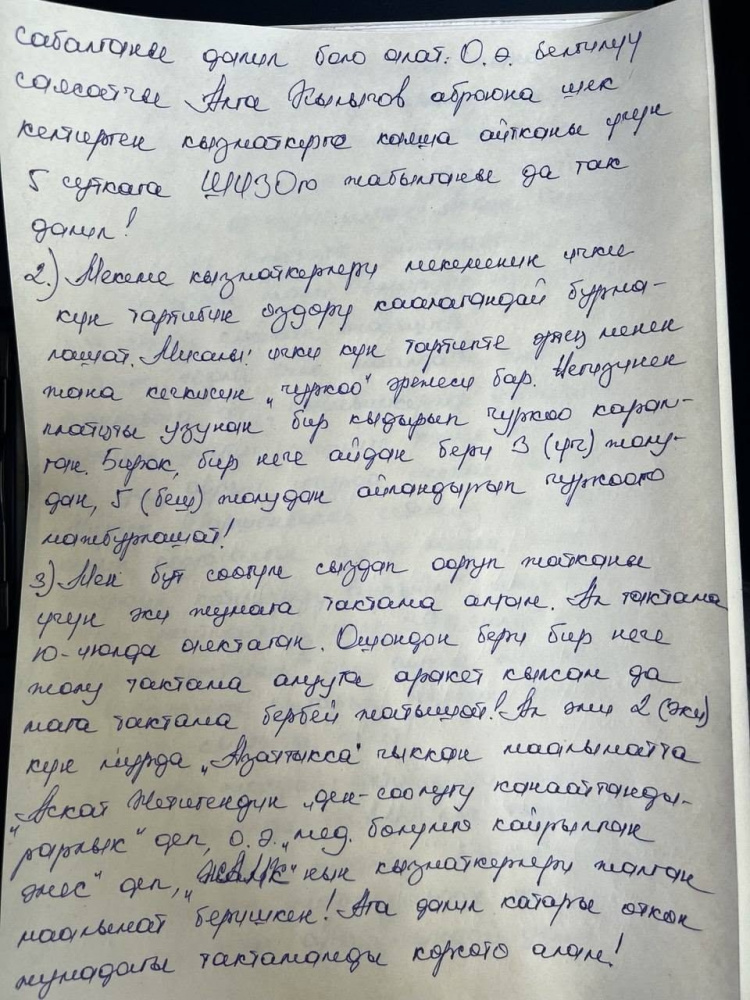 сабалганы далил боло алат. О.э. белгилүү
саясатчы Алга Кылычов абройона шек
келтирген кызматкерге каша айтканы үчүн
5 суткага ШИЗОго жабылганы да так
далил!
2.) Мекеме кызматкерлери мекеменин ички
күн тартибин өздөрү каалагандай бурма-
лашат. Мисалы: ички күн тартипте эртең менен
жана кечкисин „чуркоо" эрежеси бар. Негизинен
платцты узунан бир кыдырып чуркоо карал-
ган. Бирок, бир нече айдан бери 3 (үч) жолу-
дан, 5 (беш) жолудан айландырып чуркоого
мажбурлашат!
3) Мен бут сөөгүм сыздап ооруп жатканы
үчүн эки жумага тактама алгам. Ал тактама
10-июлда аяктаган. Ошондон бери бир нече
жолу тактама алууга аракет кылсам да
мага тактама бербей жатышат! Ал эми 2 (эки)
күн мурда „Азаттыкка" чыккан маалыматта
"Аскат Жетигендин „ден-соолугу канааттанды-
рарлык" деп, о.э. „мед. бөлүмгө кайрылган
эмес" деп, „ЖАМК"нын кызматкерлери жалган
маалымат беришкен! Ага далил катары өткөн
жумадагы тактамамды көрсөтө алам!